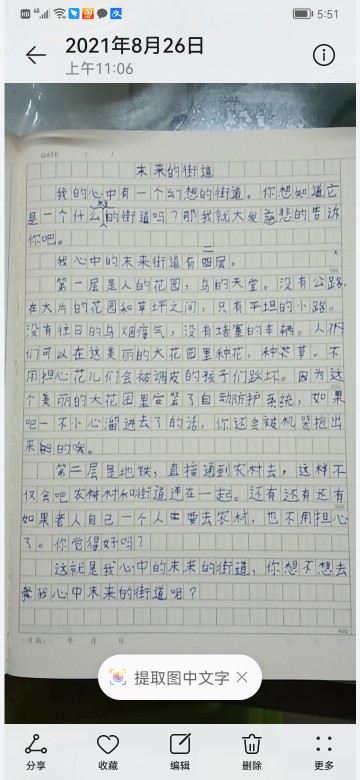 5:51
2021年8月26日
上午11:06
DATE / /
未来的街道
我的心中有一个幻想的街道。你想知道它
是一个什么样的街道吗？那我就大发慈悲的告诉
你吧。
我心中的未来街道有二层。
第一层是人的花园，鸟的天堂。没有公路，
在大片的花园和草坪之间，只有平坦的小路。
没有往日的乌烟瘴气，没有堵塞的车辆。人们
们可以在这美丽的大花园里种花，种草。不
用担心花儿们会被调皮的孩子们踩坏。因为这
个美丽的大花园里安装了自动防护系统，如果
吧一不小心溜进去了的话，你还会被机器抱出
来的唉。
第二层是地铁，直接通到农村去，这样不
仅会吧农村和街道连在一起。还有还有还有
如果老人自己一个人要去农村，也不用担心
了。你觉得好吗？
这就是我心中的未来的街道，你想不想去
我心中未来的街道呢？
400
日期： 年 月 日
提取图中文字
分享
收藏
编辑
删除
更多